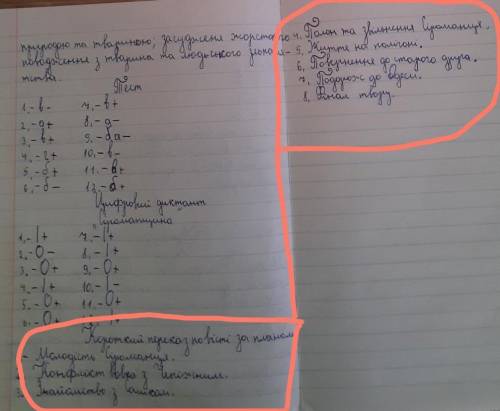 природою та твариною, засудження жорстокого
поводження з тварина та людського
тва.
Тест
1.-в-
2.-а+
3.-в+
4.-г+
5.-б+
6.-б-
7.-в+
8.-а-
9.-ба-
10.-в-
11.-в+
12.-б+
Цифровий диктант
"Сіроманщина"
1.-1+
2.-0-
3.-0+
4.-1+
5.-0+
6.-0+
7.-1+
8.-1+
9.-0+
10.-1-
11.-0+
12.-1+
Короткий переказ повісті за планом
Молодість Сіроманця.
Конфлікт вовка з Чепіжним.
3. Знайомство з Сашком.
4. Полон та звільнення Сіроманця.
5. Життя на полігоні.
6. Повернення до старого друга.
7. Подорож до Одеси.
8. Фінал твору.